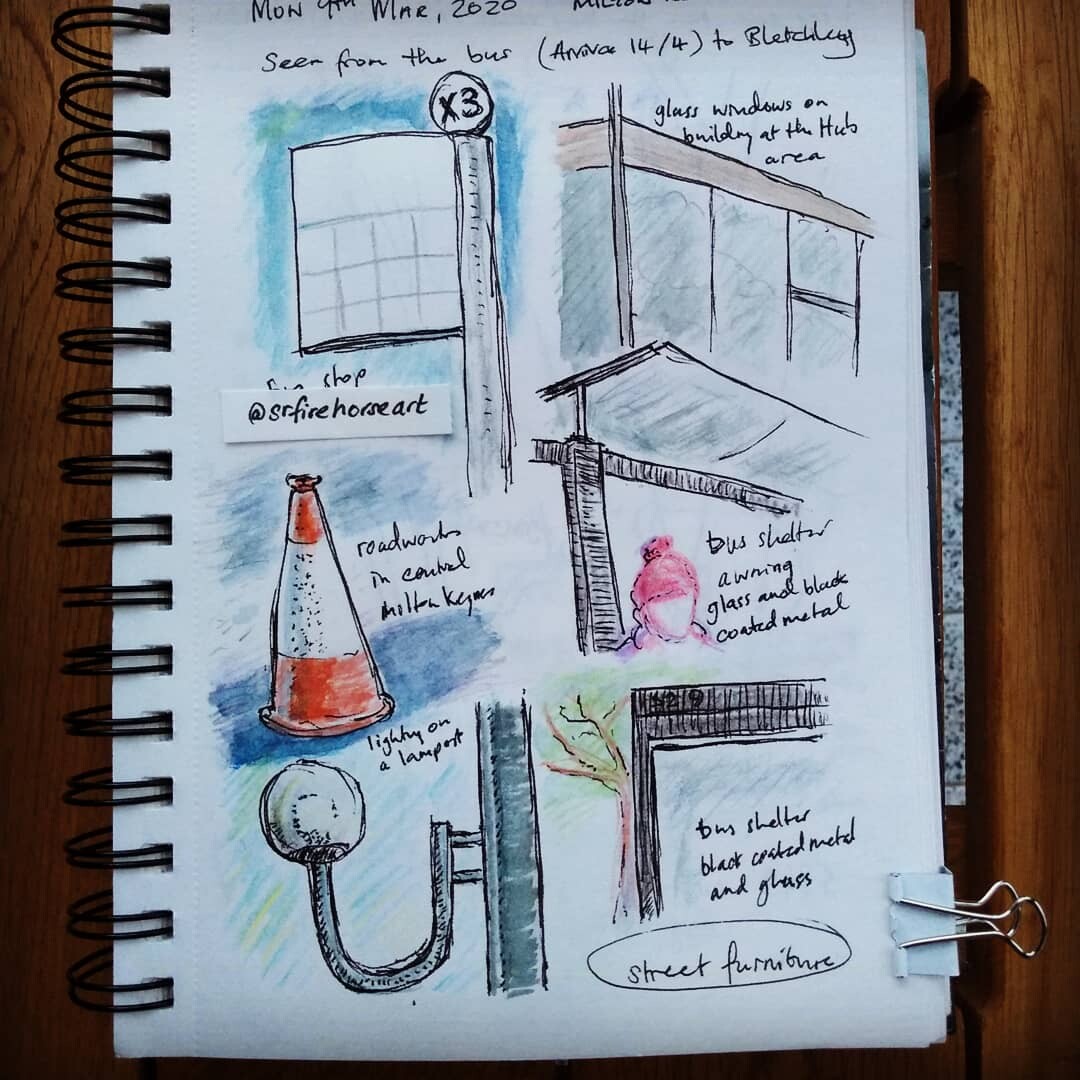 MON 9TH MAR, 2020 MILTON
Seen from the bus (Arriva 14/4) to Bletchley
X3
glass windows on
building at the Hub
area
stop
@srfirehorseart
roadworks
in central
milton keynes
bus shelter
awning
glass and black
coated metal
lighting on
a lampost
bus shelter
black coated metal
and glass
street furniture